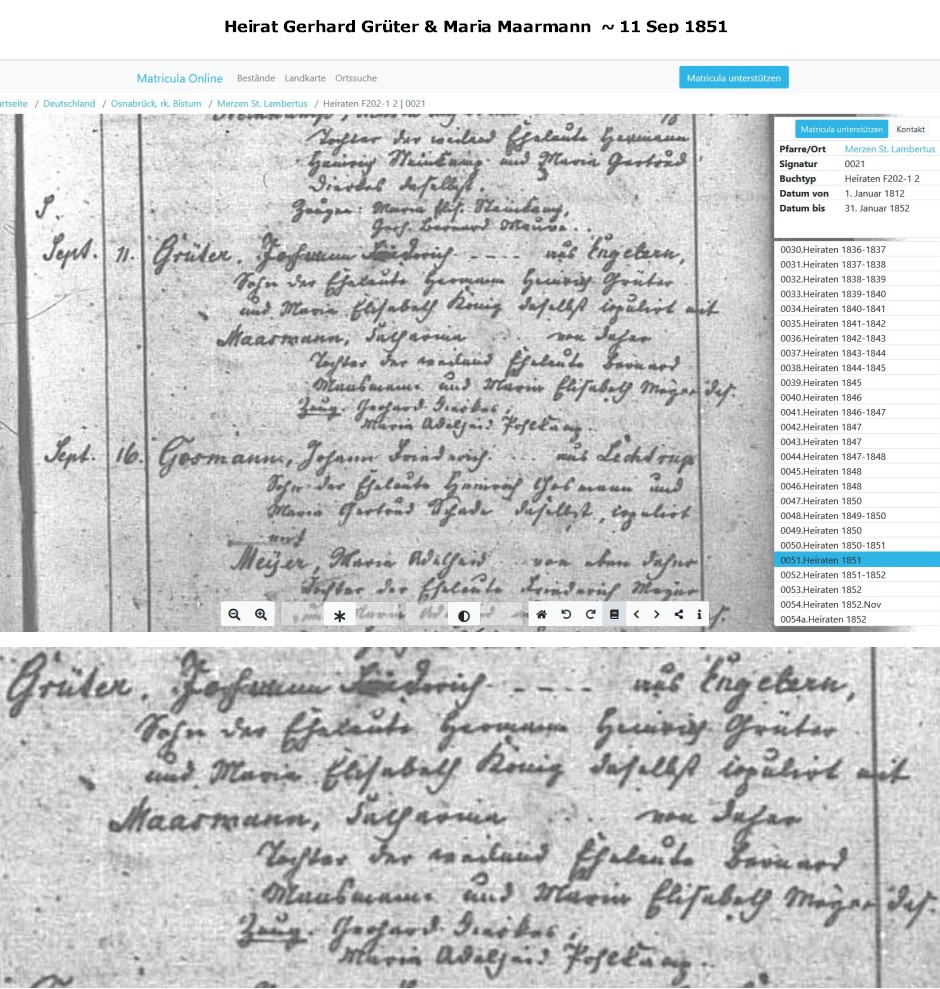 Heirat Gerhard Grüter & Maria Maarmann ~ 11 Sep 1851
Matricula Online Bestände Landkarte Ortssuche Matricula unterstützen
artseite / Deutschland / Osnabrück, rk. Bistum / Merzen St. Lambertus / Heiraten F202-1 2 | 0021
Matricula unterstützen Kontakt
Pfarre/Ort Merzen St. Lambertus
Signatur 0021
Buchtyp Heiraten F202-1 2
Datum von 1. Januar 1812
Datum bis 31. Januar 1852
0030.Heiraten 1836-1837
0031.Heiraten 1837-1838
0032.Heiraten 1838-1839
0033.Heiraten 1839-1840
0034.Heiraten 1840-1841
0035.Heiraten 1841-1842
0036.Heiraten 1842-1843
0037.Heiraten 1843-1844
0038.Heiraten 1844-1845
0039.Heiraten 1845
0040.Heiraten 1846
0041.Heiraten 1846-1847
0042.Heiraten 1847
0043.Heiraten 1847
0044.Heiraten 1847-1848
0045.Heiraten 1848
0046.Heiraten 1848
0047.Heiraten 1850
0048.Heiraten 1849-1850
0049.Heiraten 1850
0050.Heiraten 1850-1851
0051.Heiraten 1851
0052.Heiraten 1851-1852
0053.Heiraten 1852
0054.Heiraten 1852.Nov
0054a.Heiraten 1852
Tochter der weiland Eheleute Hermann
Heinrich Steinkamp und Maria Gertrud
daselbst.
Zeugen: Maria Elis. Steinkamp,
Gerh. Bernard
S.
Sept. 11. Grüter, Johann Friederich - - - - aus Engelern,
Sohn der Eheleute Hermann Heinrich Grüter
und Maria Elisabeth König daselbst copulirt mit
Maarmann, Catharina von daher
Tochter der weiland Eheleute Bernard
und Maria Elisabeth Meyer das.
Zeug. Gerhard Dierkes,
Maria Adelheid
Sept. 16. Gosmann, Johann Friederich aus Lechtrup
Sohn der Eheleute Heinrich Gosmann und
Maria Gertrud Schade daselbst, copulirt
mit
Meijer, Maria Adelheid von eben daher
Tochter der Eheleute Friederich Meyer
Grüter, Johann Friederich - - - - aus Engelern,
Sohn der Eheleute Hermann Heinrich Grüter
und Maria Elisabeth König daselbst copulirt mit
Maarmann, Catharina von daher
Tochter der weiland Eheleute Bernard
und Maria Elisabeth Meyer das.
Zeug. Gerhard Dierkes,
Maria Adelheid